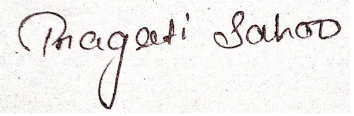 Pragati Sahoo